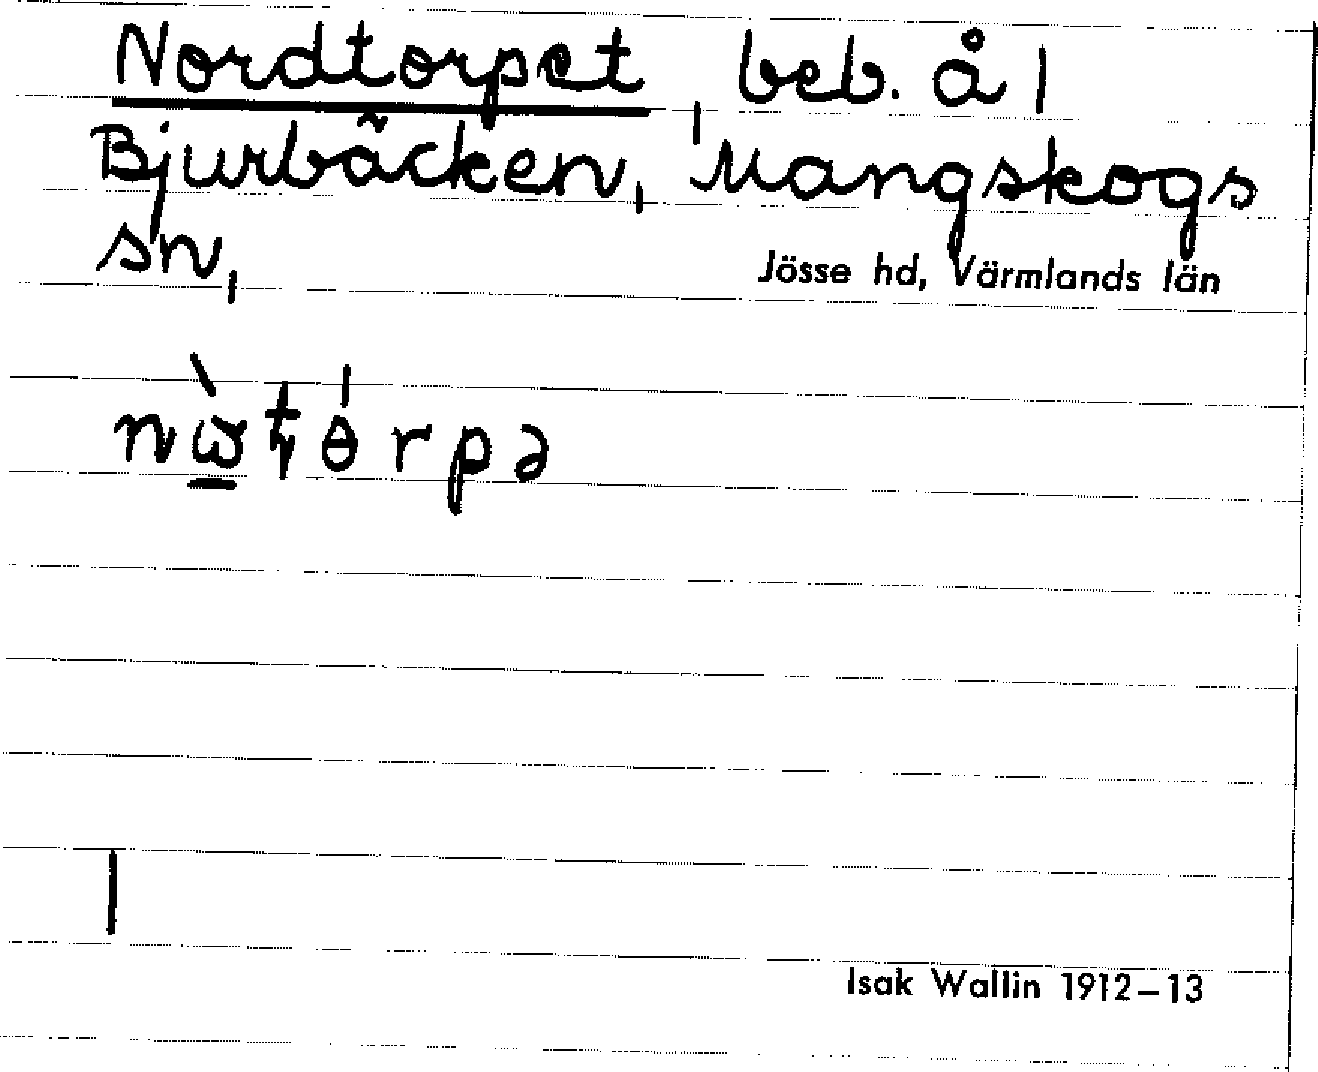 Nordtorpet, beb. å 1
Bjurbäcken, Mangskogs
sn,
Jösse hd, Värmlands län
Isak Wallin 1912–13